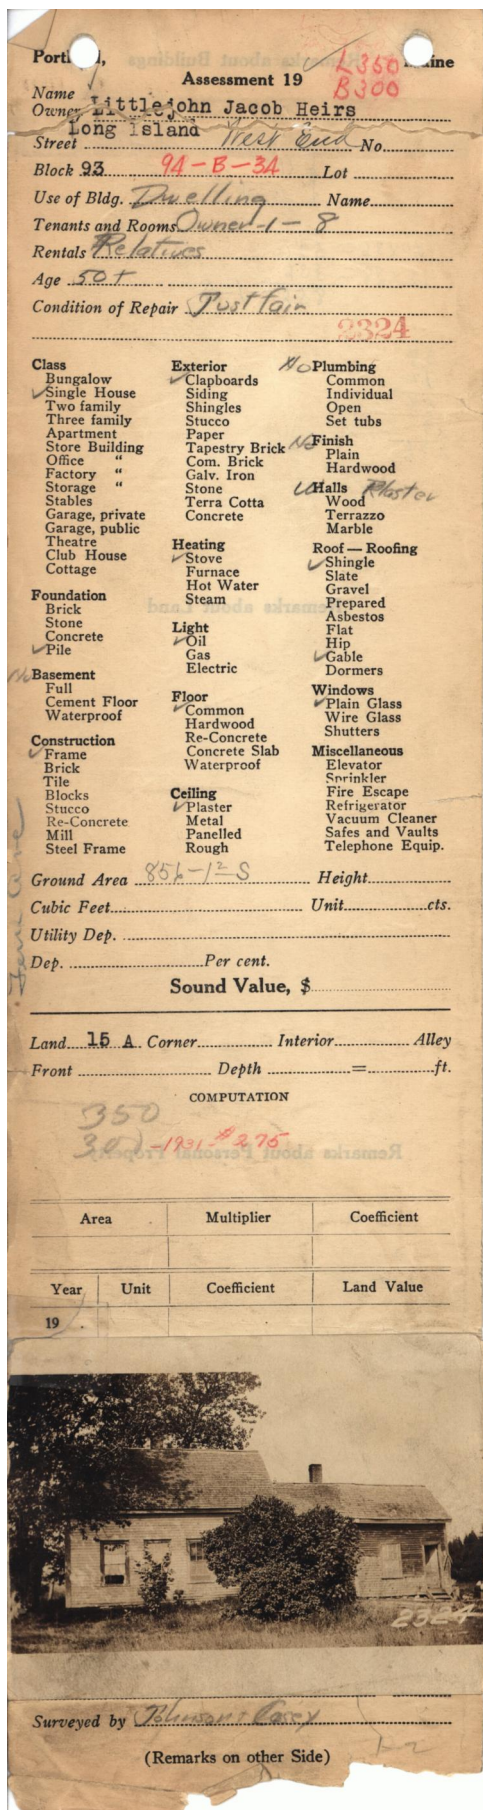 Portl d, Maine
Assessment 19
L350
B300
Name
Owner Littlejohn Jacob Heirs
Long Island
Street West End No.
Block 93 94-B-34 Lot
Use of Bldg. Dwelling Name
Tenants and Rooms Owner-1-8
Rentals Relatives
Age 50+
Condition of Repair Just fair
2324
Class
Bungalow
Single House
Two family
Three family
Apartment
Store Building
Office "
Factory "
Storage "
Stables
Garage, private
Garage, public
Theatre
Club House
Cottage
Foundation
Brick
Stone
Concrete
Pile
No Basement
Full
Cement Floor
Waterproof
Construction
Frame
Brick
Tile
Blocks
Stucco
Re-Concrete
Mill
Steel Frame
Exterior
Clapboards
Siding
Shingles
Stucco
Paper
Tapestry Brick
Com. Brick
Galv. Iron
Stone
Terra Cotta
Concrete
Heating
Stove
Furnace
Hot Water
Steam
Light
Oil
Gas
Electric
Floor
Common
Hardwood
Re-Concrete
Concrete Slab
Waterproof
Ceiling
Plaster
Metal
Panelled
Rough
No Plumbing
Common
Individual
Open
Set tubs
No Finish
Plain
Hardwood
Halls Plaster
Wood
Terrazzo
Marble
Roof — Roofing
Shingle
Slate
Gravel
Prepared
Asbestos
Flat
Hip
Gable
Dormers
Windows
Plain Glass
Wire Glass
Shutters
Miscellaneous
Elevator
Sprinkler
Fire Escape
Refrigerator
Vacuum Cleaner
Safes and Vaults
Telephone Equip.
Ground Area 856-1½ S Height
Cubic Feet Unit cts.
Utility Dep.
Dep. Per cent.
Sound Value, $
Land 15 A Corner Interior Alley
Front Depth = ft.
COMPUTATION
350
300-1931-#275
Area Multiplier Coefficient
Year Unit Coefficient Land Value
19
2324
Surveyed by Johnson & Casey
(Remarks on other Side)